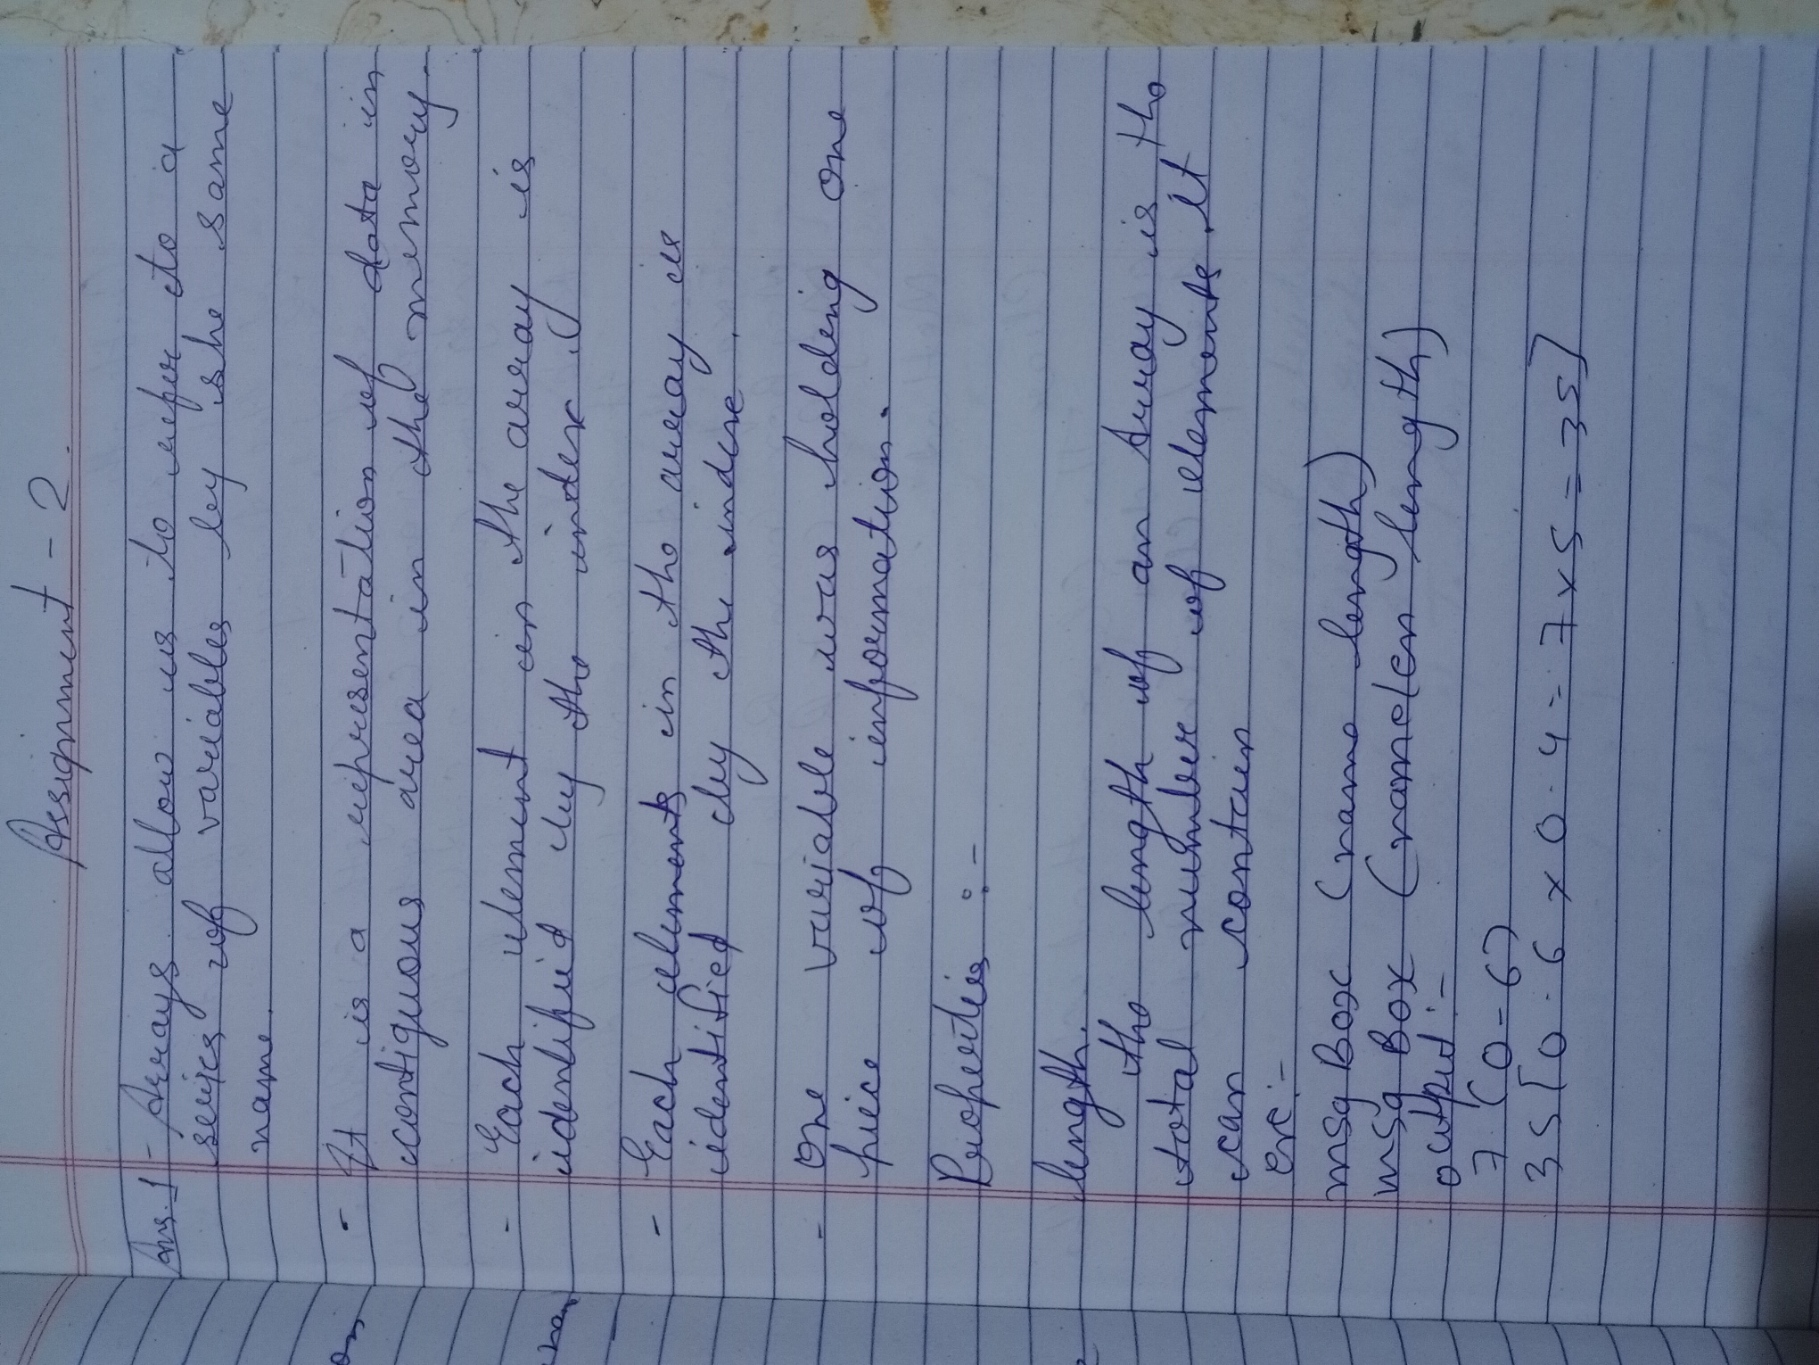 Assignment - 2.
Ans. 1 - Arrays allow us to refer to a
series of variables by the same
name.
- It is a representation of data in
contiguous area in the memory.
- Each element in the array is
identified by the index.
- Each elements in the array is
identified by the index.
- One variable was holding one
piece of information.
Properties :-
length.
the length of an Array is the
total number of elements it
can contain
ex:-
msg Box (name length)
msg Box (namelen length)
output :-
7 (0-6)
35 [0-6 x 0-4 = 7x5 = 35]